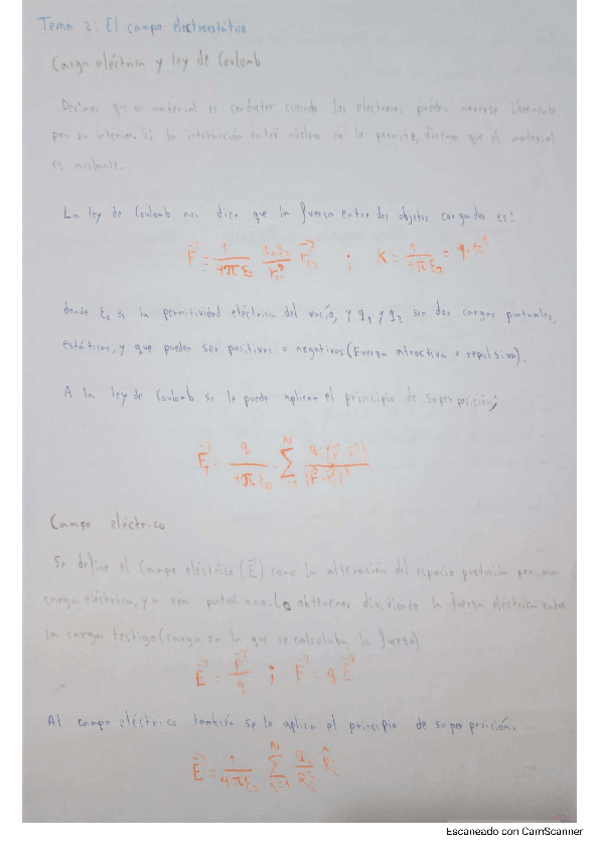 Tema 2: El campo electrostático
Carga eléctrica y ley de Coulomb
Decimos que un material es conductor cuando los electrones pueden moverse libremente
por su interior. Si la interacción entre núcleos no lo permite, diremos que el material
es aislante.
La ley de Coulomb nos dice que la fuerza entre dos objetos cargados es:
F = 1/4πε₀ ; K = 1/4πε₀ = 9·10⁹
donde ε₀ es la permitividad eléctrica del vacío, y q₁ y q₂ son dos cargas puntuales,
estáticas, y que pueden ser positivas o negativas (Fuerza atractiva o repulsiva).
A la ley de Coulomb se le puede aplicar el principio de superposición;
Campo eléctrico
Se define el Campo eléctrico (E⃗) como la alteración del espacio producida por una
carga eléctrica, ya sea puntual o no. Lo obtenemos dividiendo la fuerza eléctrica entre
la carga testigo (carga en la que se calculaba la fuerza)
E⃗ = F⃗/q ; F⃗ = q E⃗
Al campo eléctrico también se le aplica el principio de superposición.
E⃗ = 1/4πε₀ Σ
Escaneado con CamScanner